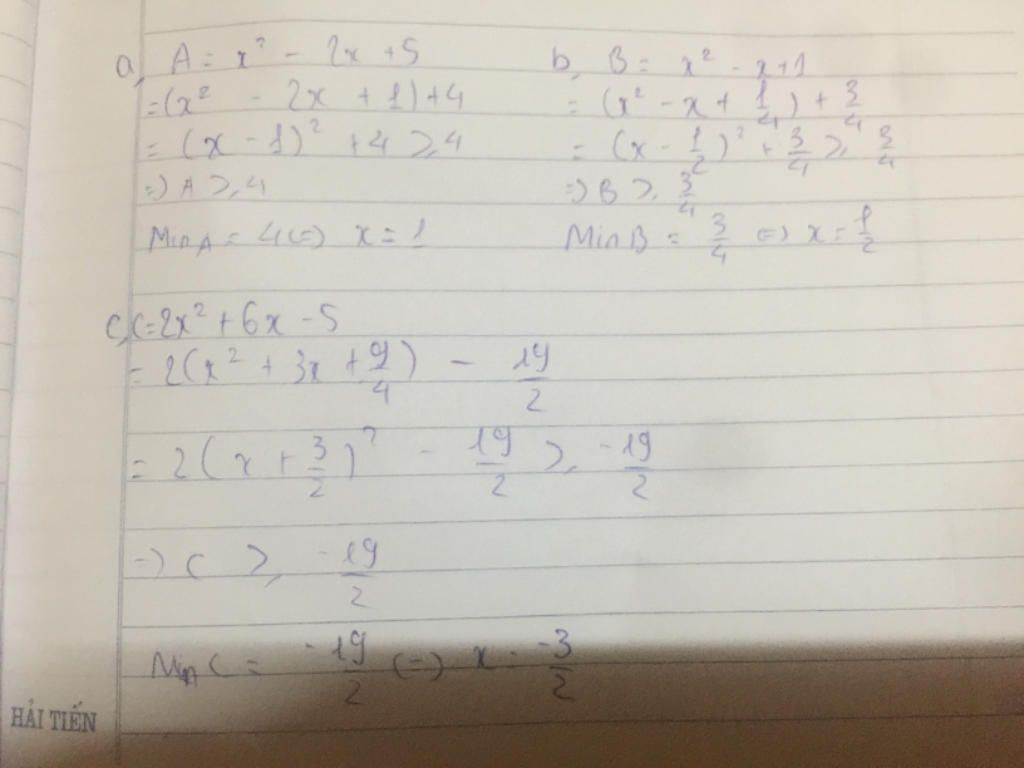 a, A = x² - 2x + 5
= (x² - 2x + 1) + 4
= (x - 1)² + 4 ≥ 4
=> A ≥ 4
Min A = 4 <=> x = 1
b, B = x² - x + 1
= (x² - x + 1/4) + 3/4
= (x - 1/2)² + 3/4 ≥ 3/4
=> B ≥ 3/4
Min B = 3/4 <=> x = 1/2
c, C = 2x² + 6x - 5
= 2(x² + 3x + 9/4) - 19/2
= 2(x + 3/2)² - 19/2 ≥ -19/2
=> C ≥ -19/2
Min C = -19/2 <=> x = -3/2
HẢI TIẾN